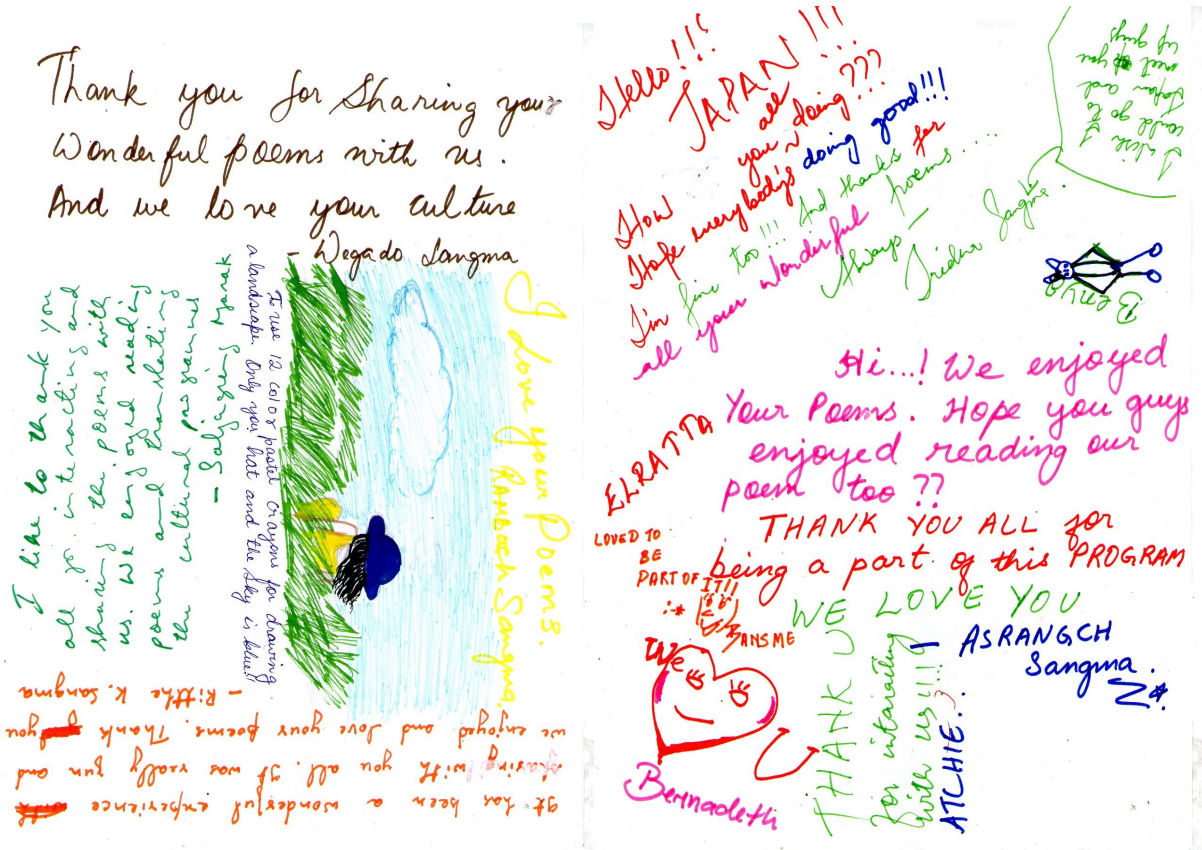 Thank you for Sharing your
Wonderful poems with us.
And we love your culture
- Wegado Sangma
I like to thank you
all for interacting and
sharing the poems with
us. We enjoyed reading
poems and translating
the cultural programmes
- Saljagring Marak
To use 12 color pastel crayons for drawing
a landscape. Only your hat and the sky is blue!!
I love your Poems.
RAMBACH SANGMA
It has been a wonderful experience
sharing with you all. It was really fun and
we enjoyed and love your poems. Thank you
- Ritthe K. Sangma
Hello!!!
JAPAN!!!
How you all doing???
Hope everybody's doing good!!!
I'm fine too!!! And thanks for
all your wonderful poems....
Always -
Sangma.
I wise I
could go to
Japan and
meet you
guys
Benya
Hi...! We enjoyed
Your Poems. Hope you guys
enjoyed reading our
poem too ??
ELRATTA
THANK YOU ALL for
being a part of this PROGRAM
LOVED TO
BE
PART OF IT!!
BANSME
WE LOVE YOU
ASRANGCH
Sangma.
THANK U
For intairaiting
with us!!!
ATCHIE.
Bernadeth